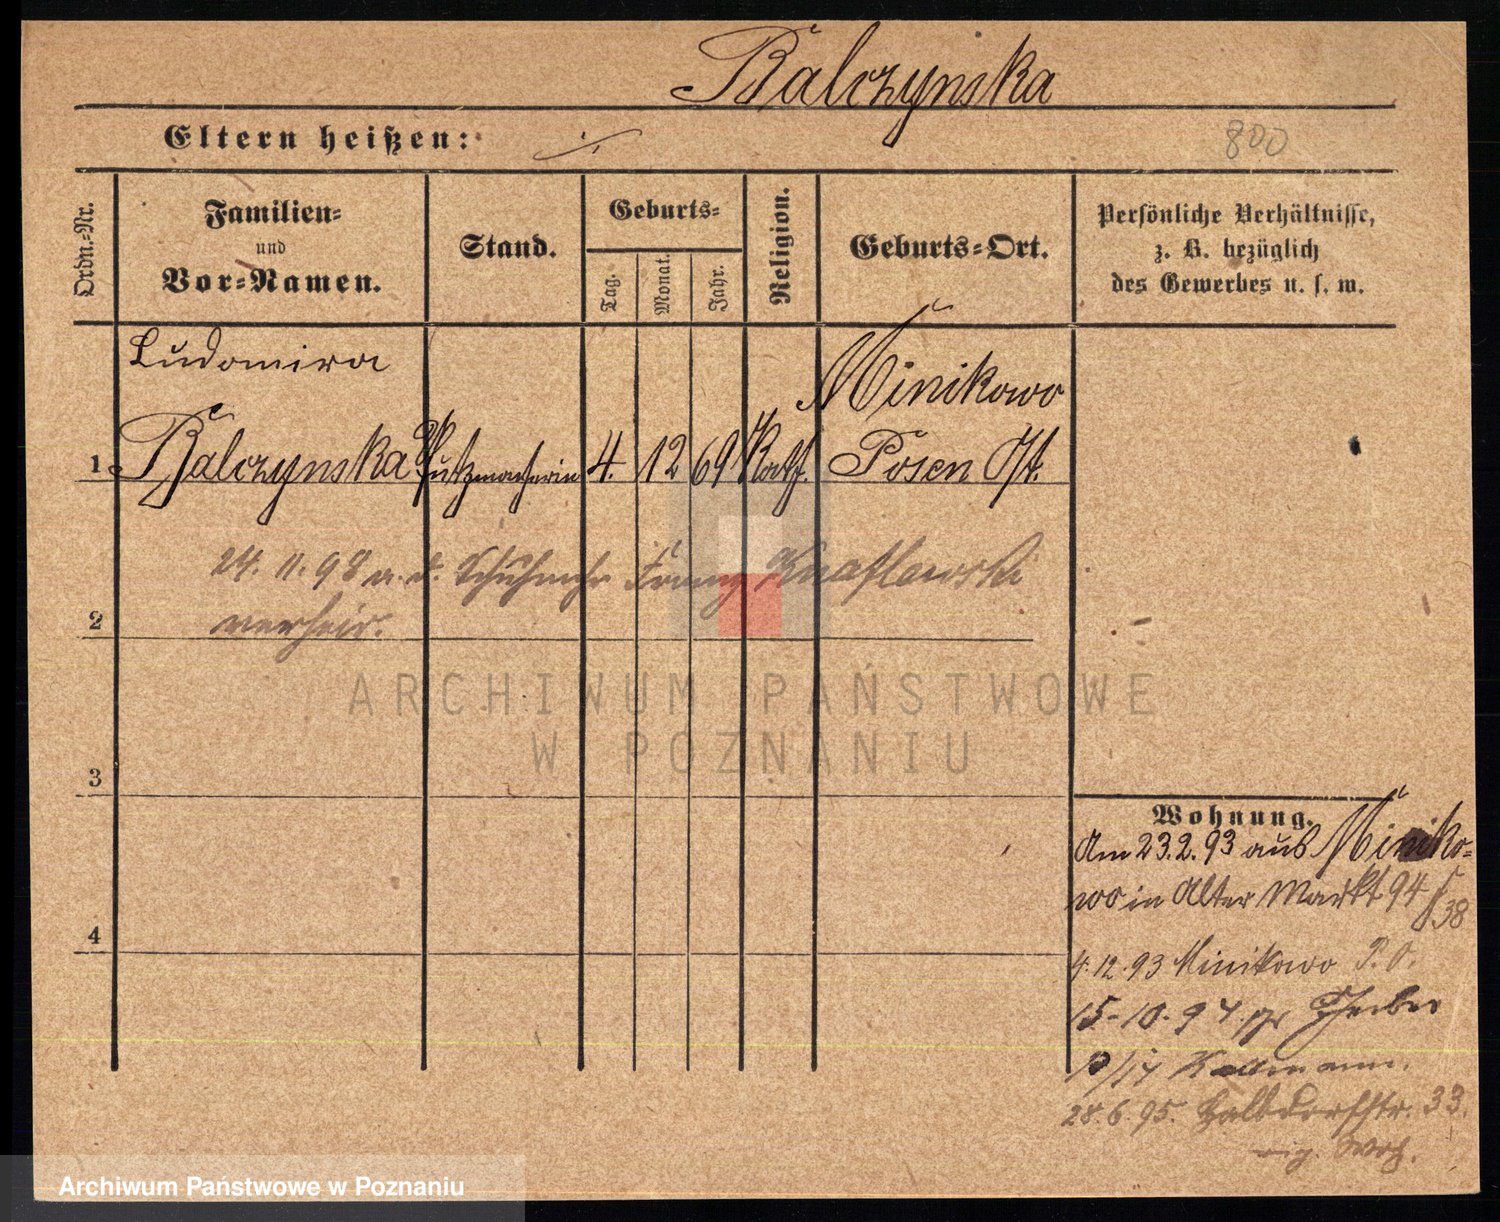 Balczynska
Eltern heißen: ./.
800
Ordn.-Nr.
Familien-
und
Vor-Namen.
Stand.
Geburts-
Tag.
Monat.
Jahr.
Religion.
Geburts-Ort.
Persönliche Verhältnisse,
z. B. bezüglich
des Gewerbes u. s. w.
Ludomira
Minikowo
1 Balczynska Putzmacherin 4. 12 69 Kath. Posen Ost.
24. 11. 98 a. d. Schuhmchr Franz Knaflewski
verheir.
2
ARCHIWUM PAŃSTWOWE
W POZNANIU
3
4
Wohnung.
Am 23.2.93 aus Miniko-
wo in Alter Markt 94
38
4.12.93 Minikowo P. O.
15-10-94
Kallmann.
28.6.95. Halbdorfstr. 33.
Archiwum Państwowe w Poznaniu